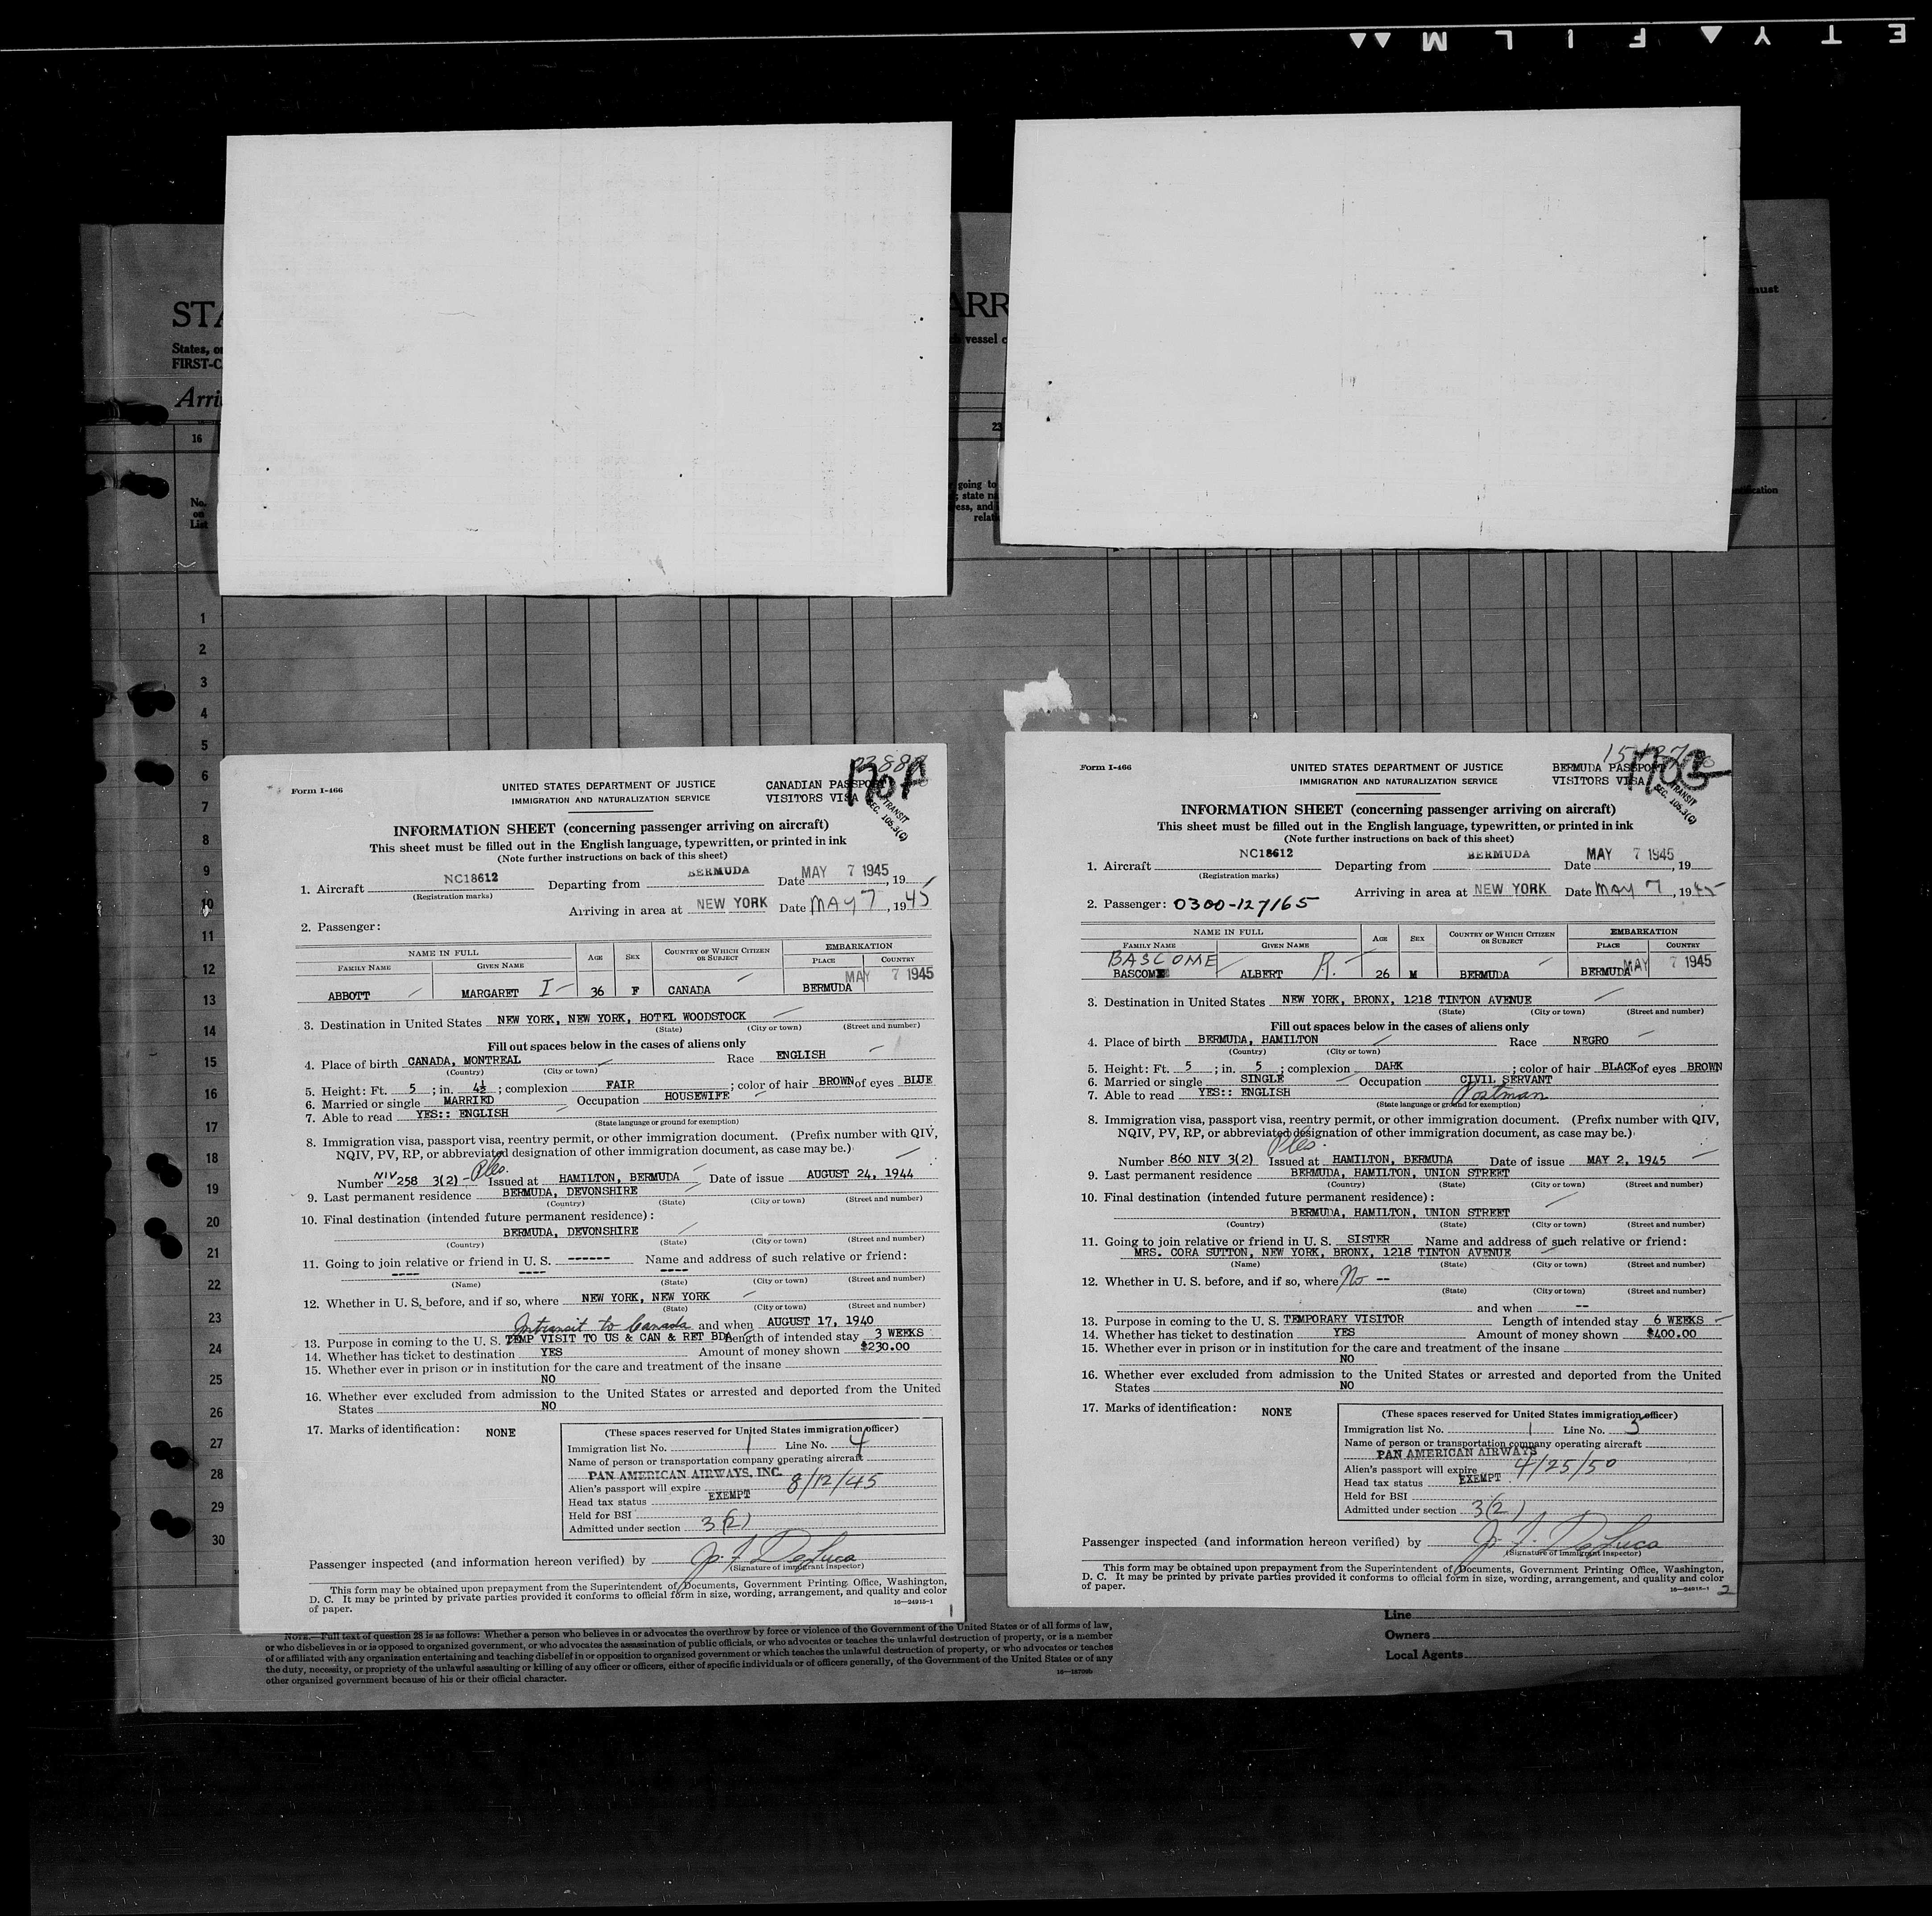 SAFETY FILM
STA
ARR
must
States, o
h vessel c
FIRST-C
Arri
16
23
going to
; state na
ess, and
relat
ification
No.
on
List
1
2
3
4
5
6
7
8
9
10
11
12
13
14
15
16
17
18
19
20
21
22
23
24
25
26
27
28
29
30
Form I-466
UNITED STATES DEPARTMENT OF JUSTICE
IMMIGRATION AND NATURALIZATION SERVICE
CANADIAN PASSPORT
VISITORS VISA
TRANSIT
SEC. 105.3(C)
INFORMATION SHEET (concerning passenger arriving on aircraft)
This sheet must be filled out in the English language, typewritten, or printed in ink
(Note further instructions on back of this sheet)
1. Aircraft NC18612 Departing from BERMUDA Date MAY 7 1945, 19
(Registration marks)
Arriving in area at NEW YORK Date MAY 7, 1945
2. Passenger:
NAME IN FULL AGE SEX COUNTRY OF WHICH CITIZEN OR SUBJECT EMBARKATION
FAMILY NAME GIVEN NAME PLACE COUNTRY
MAY 7 1945
ABBOTT MARGARET I 36 F CANADA BERMUDA
3. Destination in United States NEW YORK, NEW YORK, HOTEL WOODSTOCK
(State) (City or town) (Street and number)
Fill out spaces below in the cases of aliens only
4. Place of birth CANADA, MONTREAL Race ENGLISH
(Country) (City or town)
5. Height: Ft. 5 ; in. 4½ ; complexion FAIR ; color of hair BROWN of eyes BLUE
6. Married or single MARRIED Occupation HOUSEWIFE
7. Able to read YES:: ENGLISH
(State language or ground for exemption)
8. Immigration visa, passport visa, reentry permit, or other immigration document. (Prefix number with QIV,
NQIV, PV, RP, or abbreviated designation of other immigration document, as case may be.)
Number NIV 258 3(2) - Issued at HAMILTON, BERMUDA Date of issue AUGUST 24, 1944
9. Last permanent residence BERMUDA, DEVONSHIRE
(Country) (State) (City or town) (Street and number)
10. Final destination (intended future permanent residence):
BERMUDA, DEVONSHIRE
(Country) (State) (City or town) (Street and number)
11. Going to join relative or friend in U. S. ------ Name and address of such relative or friend:
---- ---- ----
(Name) (State) (City or town) (Street and number)
12. Whether in U. S. before, and if so, where NEW YORK, NEW YORK
(State) (City or town) (Street and number)
Intransit to Canada and when AUGUST 17, 1940
13. Purpose in coming to the U. S. TEMP VISIT TO US & CAN & RET BDA Length of intended stay 3 WEEKS
14. Whether has ticket to destination YES Amount of money shown $230.00
15. Whether ever in prison or in institution for the care and treatment of the insane
NO
16. Whether ever excluded from admission to the United States or arrested and deported from the United
States NO
17. Marks of identification: NONE
(These spaces reserved for United States immigration officer)
Immigration list No. 1 Line No. 4
Name of person or transportation company operating aircraft
PAN AMERICAN AIRWAYS, INC.
Alien's passport will expire 8/12/45
Head tax status EXEMPT
Held for BSI
Admitted under section 3(2)
Passenger inspected (and information hereon verified) by J. F. DeLuca
(Signature of immigrant inspector)
This form may be obtained upon prepayment from the Superintendent of Documents, Government Printing Office, Washington,
D. C. It may be printed by private parties provided it conforms to official form in size, wording, arrangement, and quality and color
of paper. 16—24915-1
1
Form I-466
UNITED STATES DEPARTMENT OF JUSTICE
IMMIGRATION AND NATURALIZATION SERVICE
BERMUDA PASSPORT
VISITORS VISA
TRANSIT
SEC. 105.3(C)
INFORMATION SHEET (concerning passenger arriving on aircraft)
This sheet must be filled out in the English language, typewritten, or printed in ink
(Note further instructions on back of this sheet)
1. Aircraft NC18612 Departing from BERMUDA Date MAY 7 1945, 19
(Registration marks)
Arriving in area at NEW YORK Date MAY 7, 1945
2. Passenger: 0300-127165
NAME IN FULL AGE SEX COUNTRY OF WHICH CITIZEN OR SUBJECT EMBARKATION
FAMILY NAME GIVEN NAME PLACE COUNTRY
BASCOME MAY 7 1945
BASCOM ALBERT R. 26 M BERMUDA BERMUDA
3. Destination in United States NEW YORK, BRONX, 1218 TINTON AVENUE
(State) (City or town) (Street and number)
Fill out spaces below in the cases of aliens only
4. Place of birth BERMUDA, HAMILTON Race NEGRO
(Country) (City or town)
5. Height: Ft. 5 ; in. 5 ; complexion DARK ; color of hair BLACK of eyes BROWN
6. Married or single SINGLE Occupation CIVIL SERVANT
7. Able to read YES:: ENGLISH Postman
(State language or ground for exemption)
8. Immigration visa, passport visa, reentry permit, or other immigration document. (Prefix number with QIV,
NQIV, PV, RP, or abbreviated designation of other immigration document, as case may be.)
Number 860 NIV 3(2) Issued at HAMILTON, BERMUDA Date of issue MAY 2, 1945
9. Last permanent residence BERMUDA, HAMILTON, UNION STREET
(Country) (State) (City or town) (Street and number)
10. Final destination (intended future permanent residence):
BERMUDA, HAMILTON, UNION STREET
(Country) (State) (City or town) (Street and number)
11. Going to join relative or friend in U. S. SISTER Name and address of such relative or friend:
MRS. CORA SUTTON, NEW YORK, BRONX, 1218 TINTON AVENUE
(Name) (State) (City or town) (Street and number)
12. Whether in U. S. before, and if so, where No --
(State) (City or town) (Street and number)
and when --
13. Purpose in coming to the U. S. TEMPORARY VISITOR Length of intended stay 6 WEEKS
14. Whether has ticket to destination YES Amount of money shown $400.00
15. Whether ever in prison or in institution for the care and treatment of the insane
NO
16. Whether ever excluded from admission to the United States or arrested and deported from the United
States NO
17. Marks of identification: NONE
(These spaces reserved for United States immigration officer)
Immigration list No. 1 Line No. 5
Name of person or transportation company operating aircraft
PAN AMERICAN AIRWAYS
Alien's passport will expire 4/25/50
Head tax status EXEMPT
Held for BSI
Admitted under section 3(2)
Passenger inspected (and information hereon verified) by J. F. DeLuca
(Signature of immigrant inspector)
This form may be obtained upon prepayment from the Superintendent of Documents, Government Printing Office, Washington,
D. C. It may be printed by private parties provided it conforms to official form in size, wording, arrangement, and quality and color
of paper. 16—24915-1
2
NOTE.—Full text of question 28 is as follows: Whether a person who believes in or advocates the overthrow by force or violence of the Government of the United States or of all forms of law,
or who disbelieves in or is opposed to organized government, or who advocates the assassination of public officials, or who advocates or teaches the unlawful destruction of property, or is a member
of or affiliated with any organization entertaining and teaching disbelief in or opposition to organized government or which teaches the unlawful destruction of property, or who advocates or teaches
the duty, necessity, or propriety of the unlawful assaulting or killing of any officer or officers, either of specific individuals or of officers generally, of the Government of the United States or of any
other organized government because of his or their official character.
Line
Owners
Local Agents